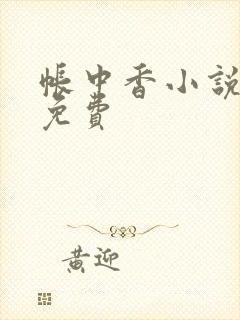 帳中香小說
免費
黃迎